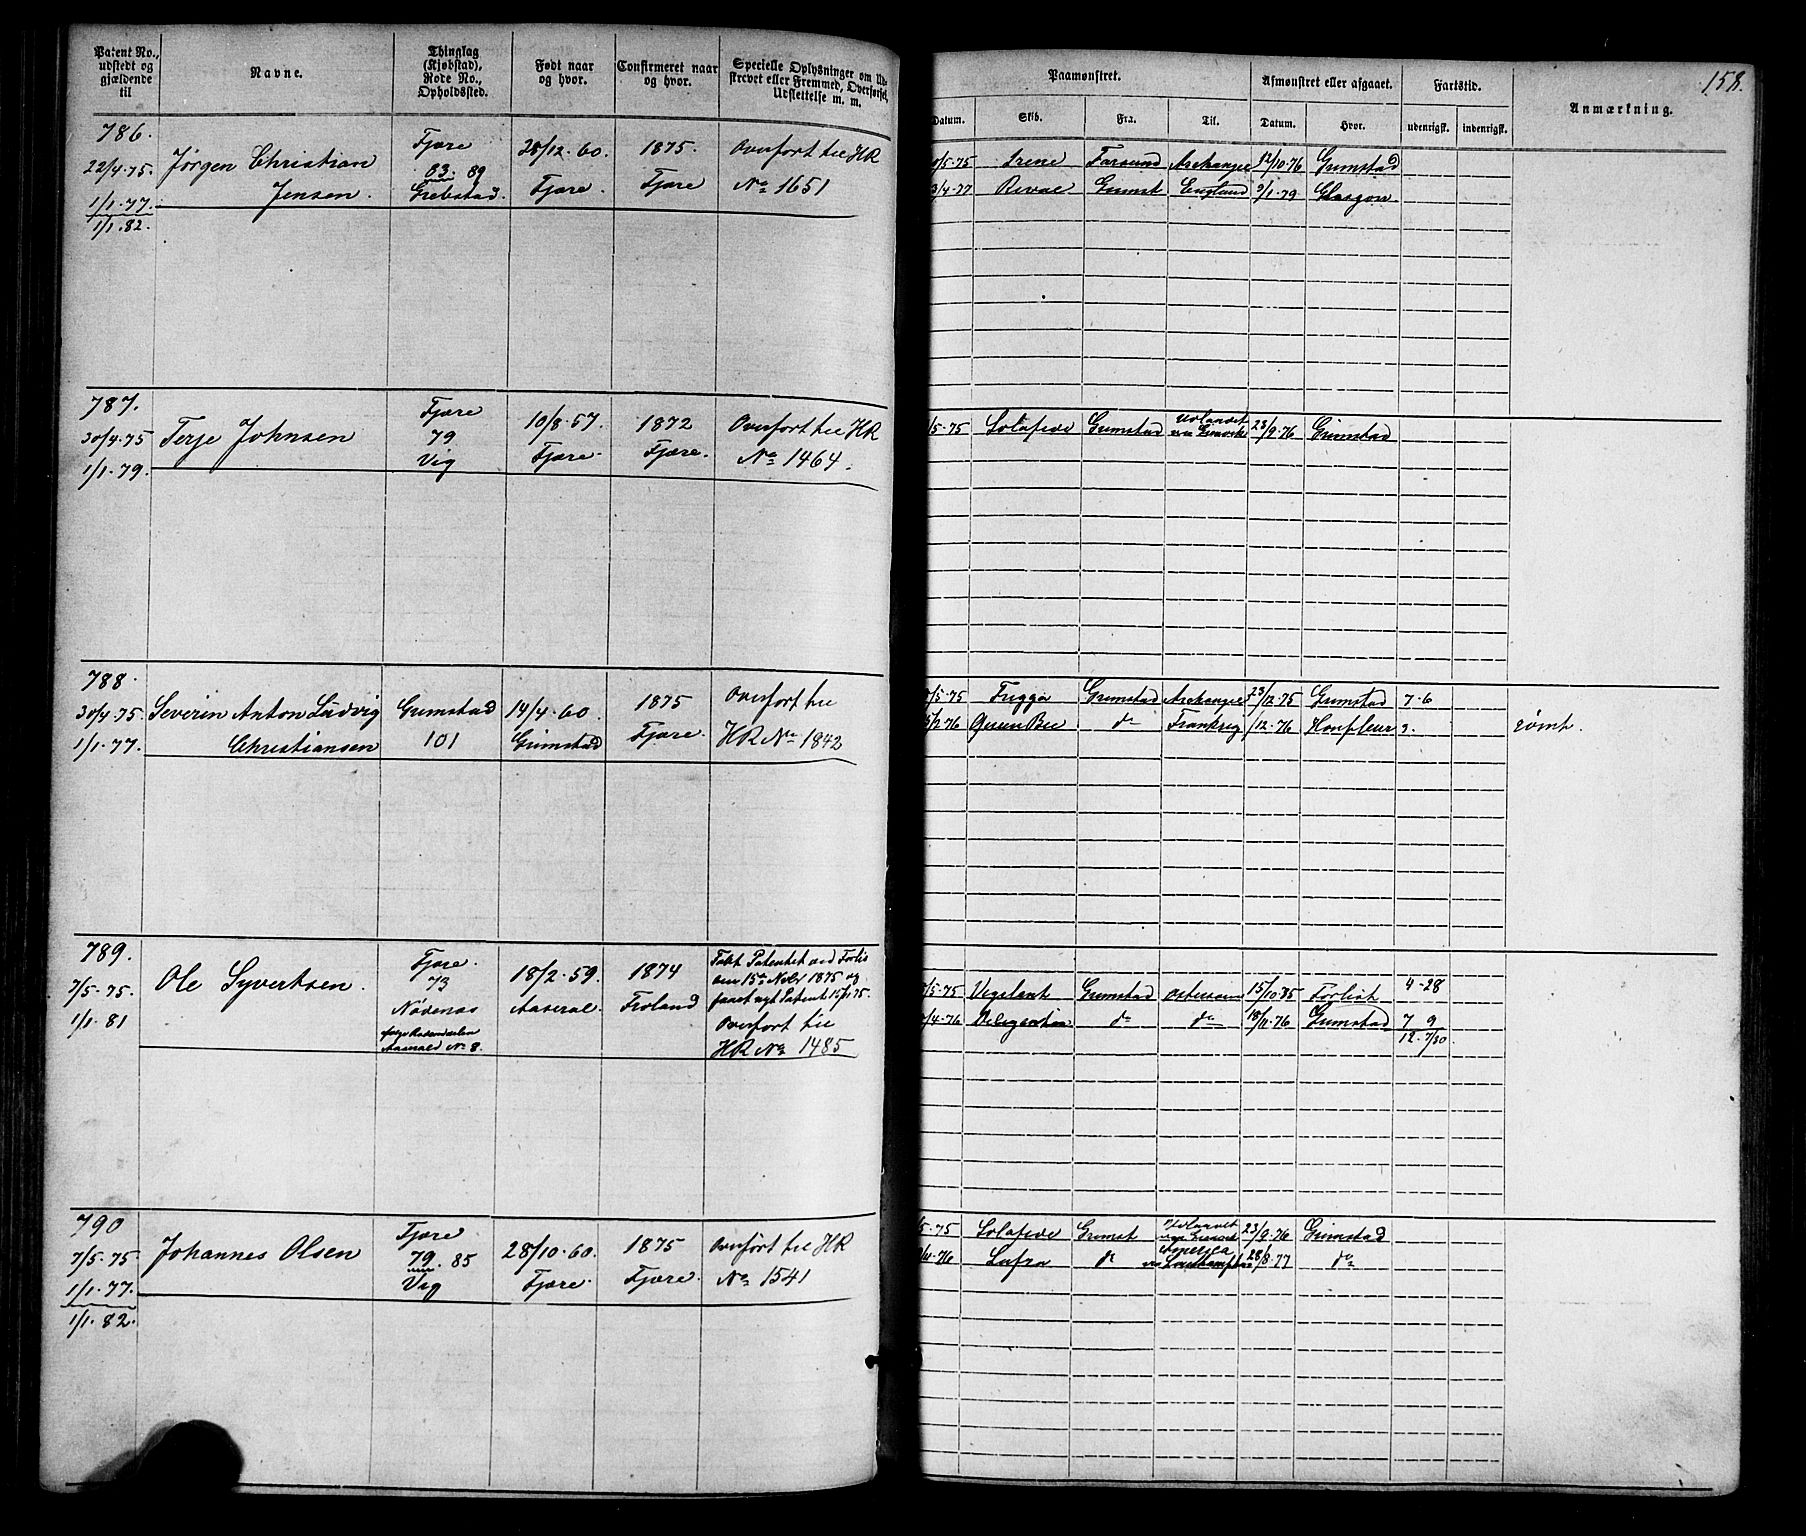 158.
Patent No., udstedt og gjældende til
Navne.
Thinglag (Kjøbstad), Rode No., Opholdssted.
Født naar og hvor.
Confirmeret naar og hvor.
Specielle Oplysninger om Udskrevet eller Fremmed, Overførsel, Udslettelse m. m.
Paamønstret.
Afmønstret eller afgaaet.
Fartstid.
Anmærkning.
Datum.
Skib.
Fra.
Til.
Datum.
Hvor.
udenrigsk.
indenrigsk.
786.
22/4.75.
1/1.77.
1/1.82.
Jørgen Christian
Jensen.
Fjære
83. 89
Grebstad.
28/12.60.
Fjære.
1875.
Fjære
Overført til HR
No 1651
/5.75 Irene Farsund Archangel 12/10.76 Grimstad
3/4.77 Reval Grimst England 9/1.79 Glasgow.
787.
30/4.75
1/1.79.
Terje Johnsen
Fjære
79
Vig
10/8.57.
Fjære.
1872
Fjære.
Overført til HR
No 1464.
/5.75 Solafide Grimstad Udlandet 23/9.76 Grimstad
788.
30/4.75.
1/1.77.
Severin Anton Ludvig
Christiansen
Grimstad
101
14/4.60.
Grimstad
1875
Fjære.
Overført til
HR No 1842
/5.75 Frigga Grimstad Archangel 23/12.75 Grimstad 7.6
/2.76 Queen Bee do Frankrig /12.76 Honfleur 3. rømt.
789.
7/5.75.
1/1.81
Ole Syvertsen.
Fjære.
73
Nødenæs
Aaserald No 8.
18/2.59.
Aaseral
1874
Froland
Tabt Patentet ved Forlis
den 15de Novbr 1875 og
faaet nyt Patent 15/1.75.
Overført til
HR No 1485
/5.75 Vigilant Grimstad Østersøen 15/10.75 Forlist 4-28
/4.76 Deligentia do do 18/11.76 Grimstad 7 9
12.7/30
790
7/5.75
1/1.77.
1/1.82.
Johannes Olsen
Fjære
79.85
Vig
28/10.60.
Fjære.
1875
Fjære.
Overført til HR
No 1541
/5.75 Solafide Grimst Udlandet 23/9.76 Grimstad
/11.76 Lufra do America 28/8.77 do